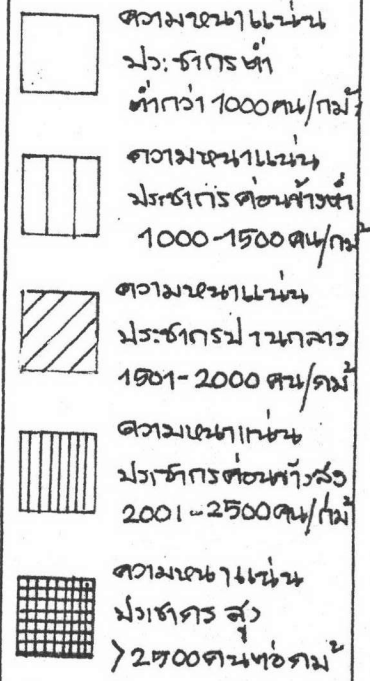 ความหนาแน่น
ประชากรต่ำ
ต่ำกว่า 1000 คน/กม²
ความหนาแน่น
ประชากรค่อนข้างต่ำ
1000-1500 คน/กม²
ความหนาแน่น
ประชากรปานกลาง
1501-2000 คน/กม²
ความหนาแน่น
ประชากรค่อนข้างสูง
2001-2500 คน/กม²
ความหนาแน่น
ประชากร สูง
>2500 คนต่อกม²